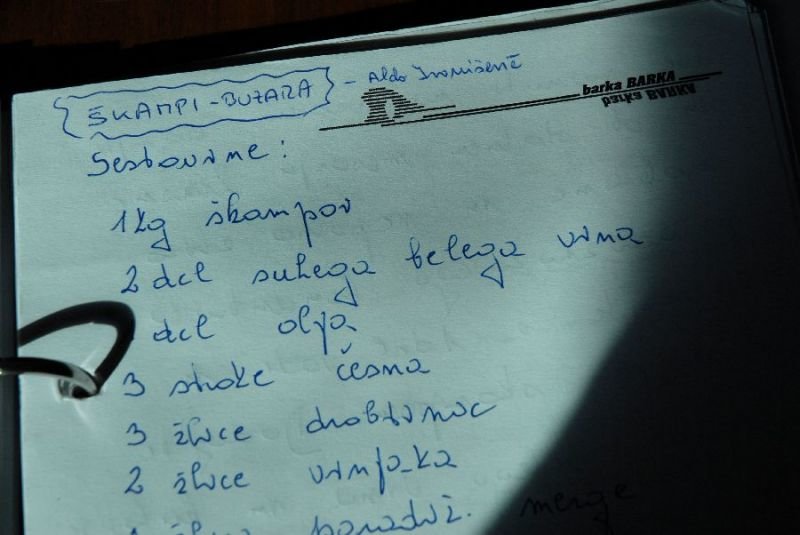 ŠKAMPI-BUZARA - Aldo
barka BARKA
barka BARKA
Sestavine:
1 kg škampov
2 dcl suhega belega vina
dcl olja
3 stroke česna
3 žlice drobtinic
2 žlice vinjaka
paradiž. mezge